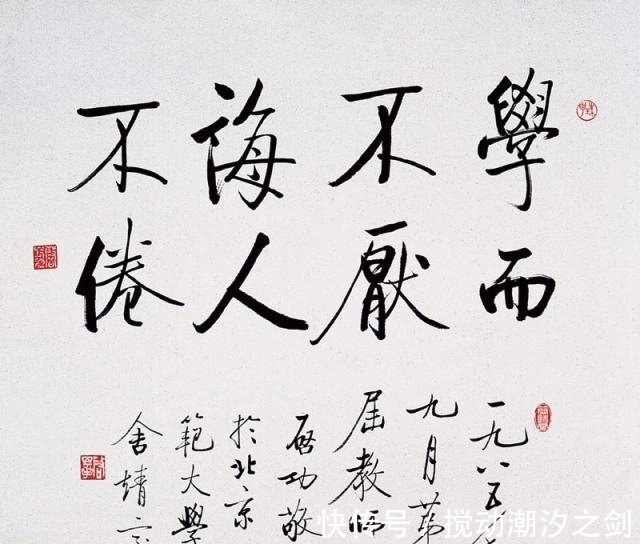 學而
不厭
誨人
不倦
一九八五
九月第
屆教
启功敬
於北京
範大學
舍
快传号·搅动潮汐之剑